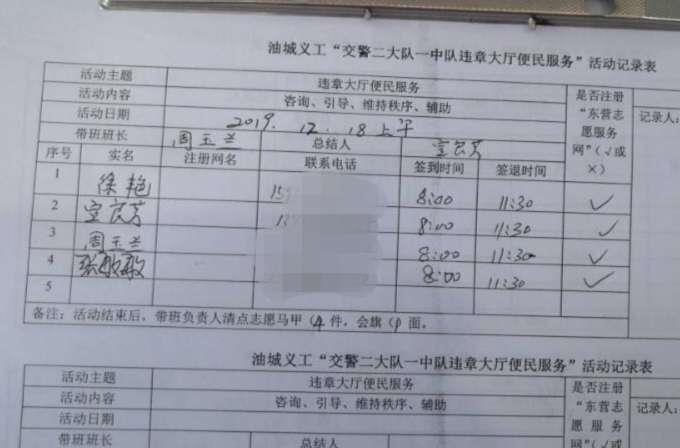 油城义工“交警二大队一中队违章大厅便民服务”活动记录表
活动主题 违章大厅便民服务 是否注册“东营志愿服务网”(√或×) 记录人:
活动内容 咨询、引导、维持秩序、辅助
活动日期 2019. 12. 18上午
带班班长 周玉兰 总结人
序号 实名 注册网名 联系电话 签到时间 签退时间
1 徐艳 8:00 11:30 √
2 8:00 11:30 √
3 周玉兰 8:00 11:30 √
4 张敏敏 8:00 11:30 √
5
备注:活动结束后,带班负责人清点志愿马甲(4件,会旗(1)面。
油城义工“交警二大队一中队违章大厅便民服务”活动记录表
活动主题 违章大厅便民服务 是否注册“东营志愿服务网”(√或 记录人:
活动内容 咨询、引导、维持秩序、辅助
活动日期
带班班长 总结人